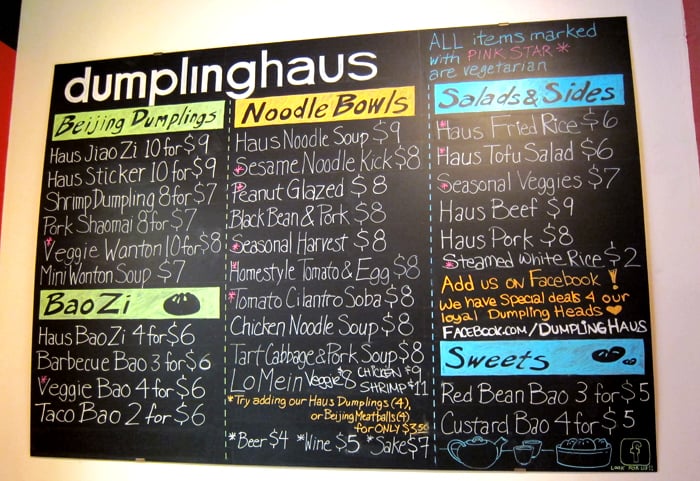 dumplinghaus
Beijing Dumplings
Haus Jiao Zi 10 for $9
Haus Sticker 10 for $9
Shrimp Dumpling 8 for $7
Pork Shaomai 8 for $7
*Veggie Wanton 10 for $8
Mini Wonton Soup $7
BaoZi
Haus Bao Zi 4 for $6
Barbecue Bao 3 for $6
*Veggie Bao 4 for $6
Taco Bao 2 for $6
Noodle Bowls
Haus Noodle Soup $9
*Sesame Noodle Kick $8
*Peanut Glazed $8
Black Bean & Pork $8
*Seasonal Harvest $8
*Homestyle Tomato & Egg $8
*Tomato Cilantro Soba $8
Chicken Noodle Soup $8
Tart Cabbage & Pork Soup $8
Lo Mein Veggie $8 CHICKEN $9
SHRIMP $11
*Try adding our Haus Dumplings (4),
or Beijing Meatballs (4)
for ONLY $3.50
*Beer $4 *Wine $5 *Sake $7
ALL items marked
with PINK STAR *
are vegetarian
Salads & Sides
*Haus Fried Rice $6
*Haus Tofu Salad $6
*Seasonal Veggies $7
Haus Beef $9
Haus Pork $8
*Steamed White Rice $2
Add us on Facebook!
We have Special deals 4 our
loyal Dumpling Heads ♥
FACEBOOK.COM/DUMPLINGHAUS
Sweets
Red Bean Bao 3 for $5
Custard Bao 4 for $5
LOOK FOR US!!